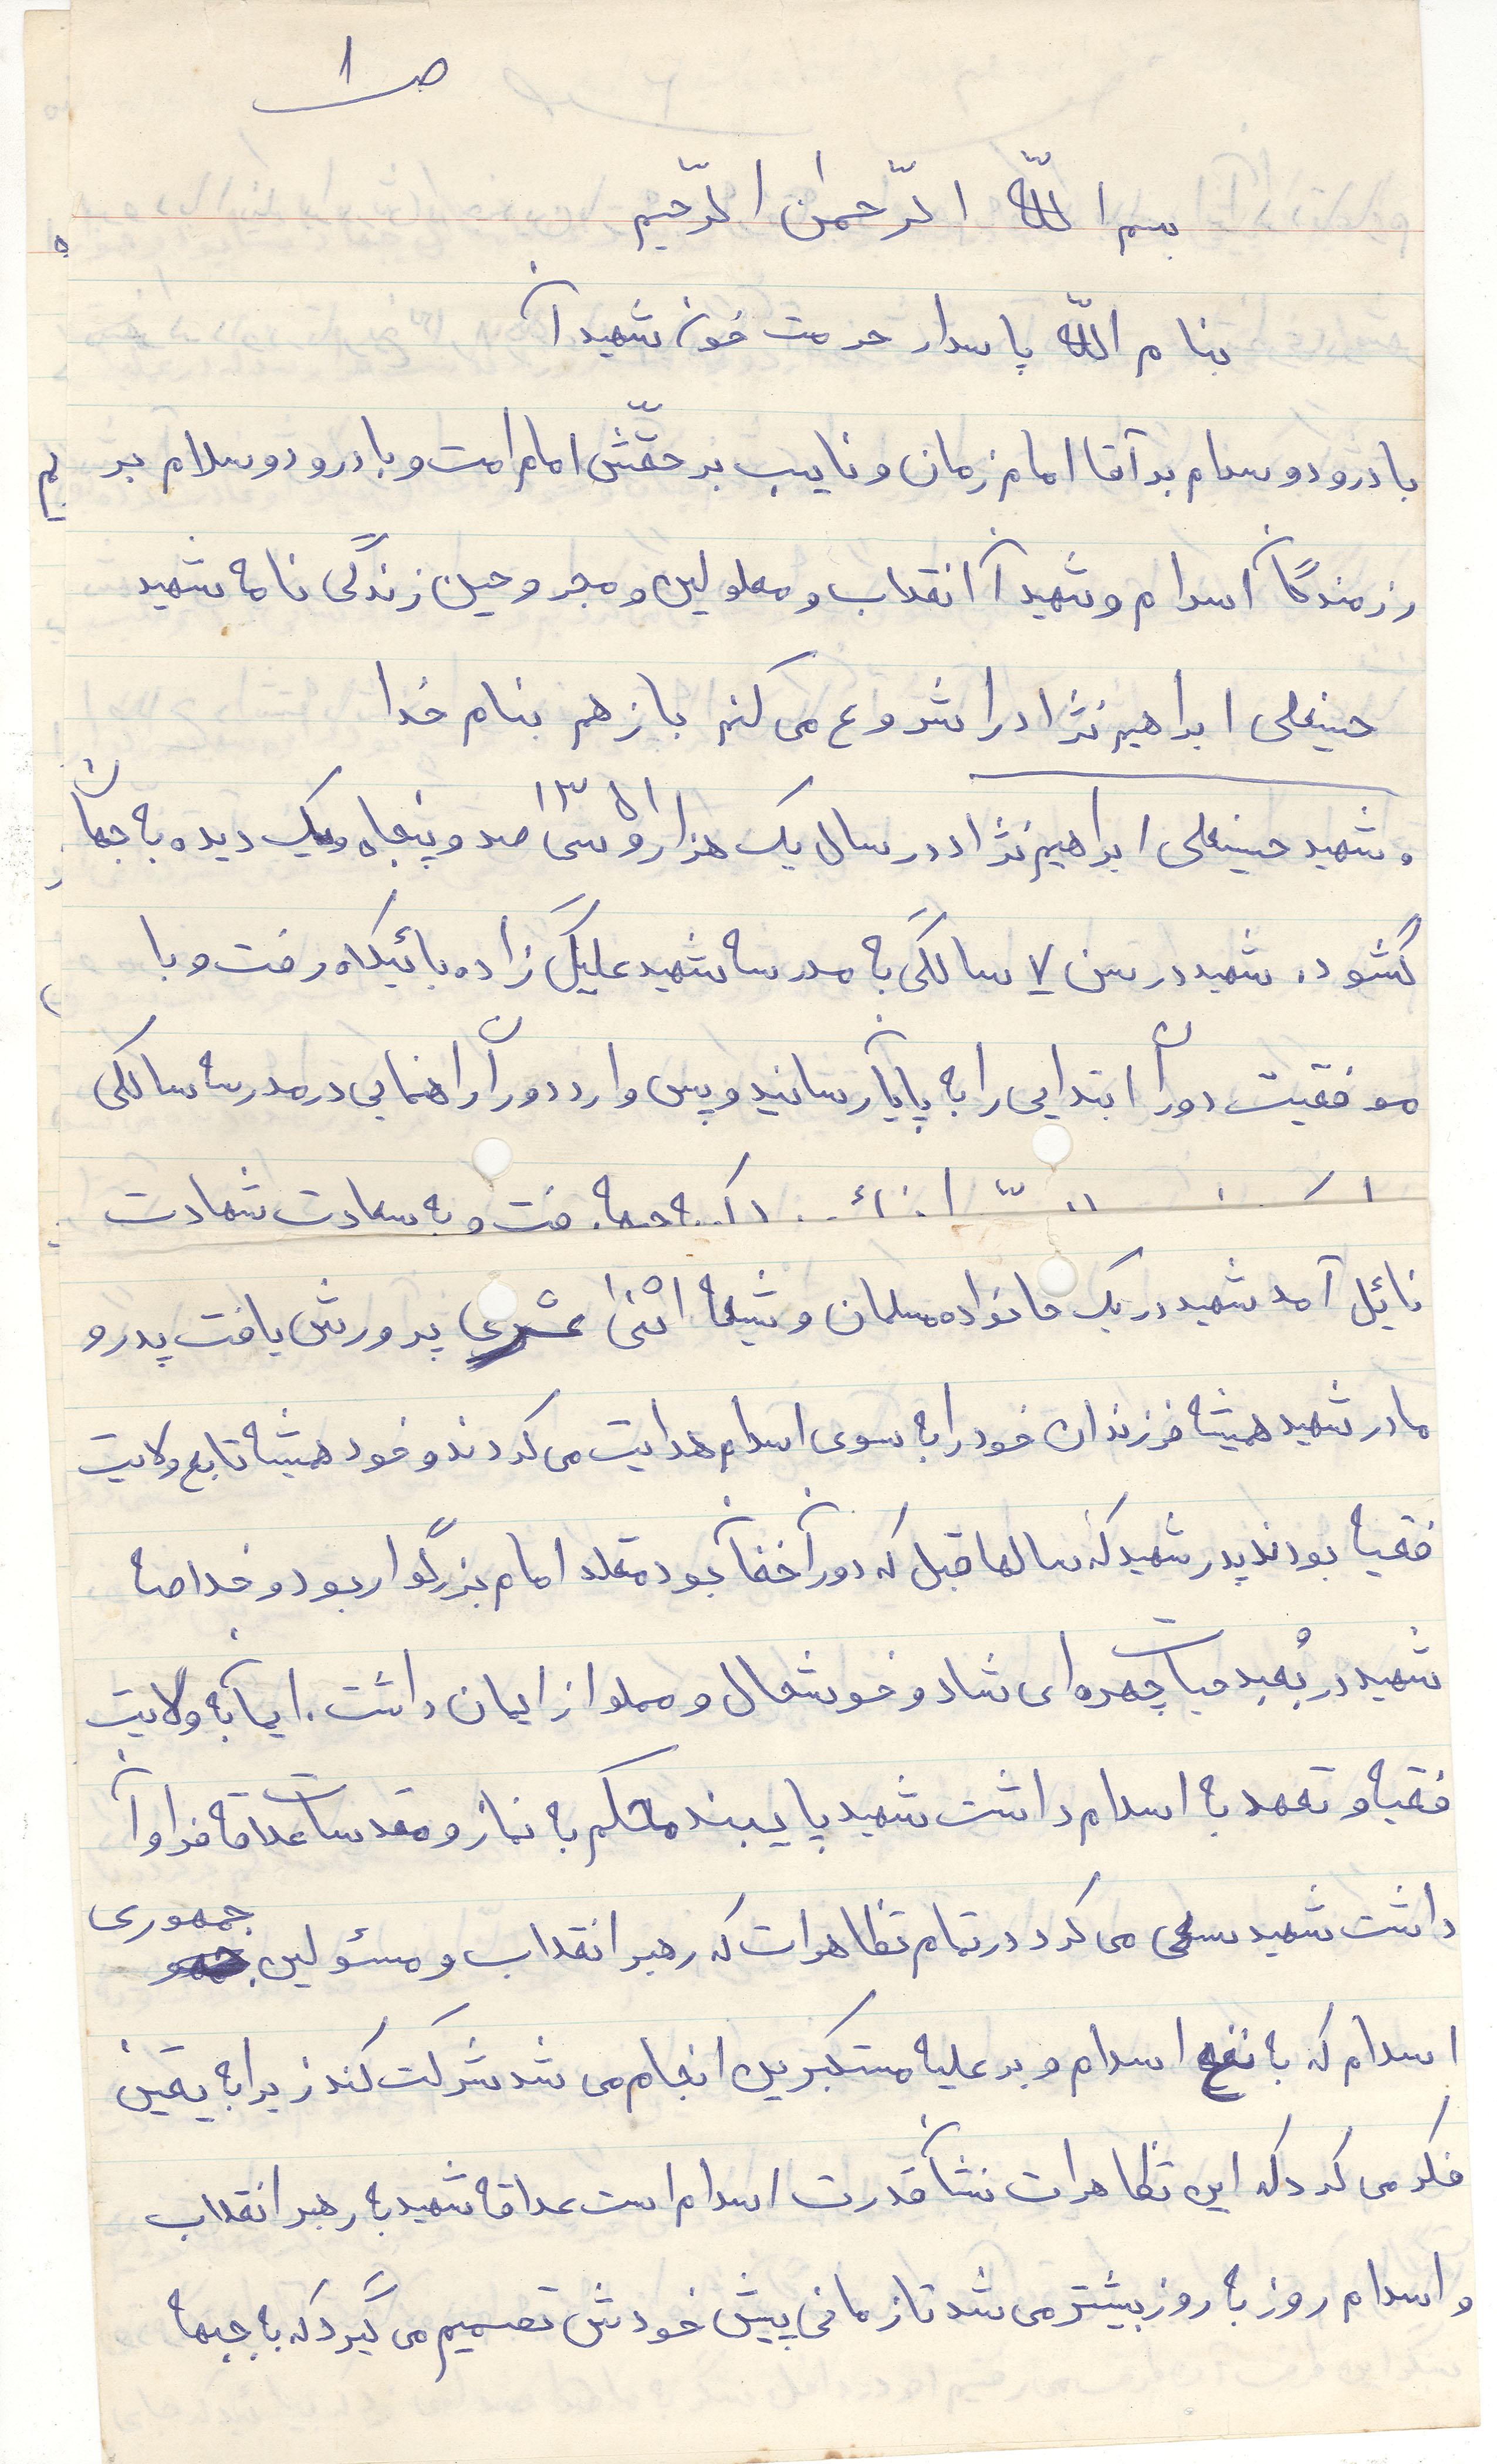 ص ۱
بسم اللّه الرّحمٰن الرّحیم
بنام اللّه پاسدار حرمت خون شهیدان
با درود و سلام بر آقا امام زمان و نایب بر حقّش امام امت و با درود و سلام بر
رزمندگان اسلام و شهیدان انقلاب و معلولین و مجروحین زندگی نامه شهید
حسینعلی ابراهیم نژاد را شروع می کنم باز هم بنام خدا
شهید حسینعلی ابراهیم نژاد در سال یک هزار و سی صد و پنجاه و یک ۱۳۵۱ دیده به جهان
گشود. شهید در سن ۷ سالگی به مدرسه شهید علیگل زاده بائیکلاه رفت و با
موفقیت دوران ابتدایی را به پایان رسانید و پس وارد دوران راهنمایی در مدرسه سالکی
به جبهه رفت و به سعادت شهادت
نائل آمد شهید در یک خانواده مسلمان و شیعه اثنیٰ عشری پرورش یافت پدر و
مادر شهید همیشه فرزندان خود را به سوی اسلام هدایت می کردند و خود همیشه تابع ولایت
فقیه بودند پدر شهید که سالها قبل که دوران خفقان بود مقلد امام بزرگوار بود و خلاصه
شهید در بُعد حیات چهره ای شاد و خوشحال و مملو از ایمان داشت. ایمان به ولایت
فقیه و تعهد به اسلام داشت شهید پایبند محکم به نماز و مقدسات علاقه فراوان
داشت شهید سعی می کرد در تمام تظاهرات که رهبر انقلاب و مسئولین جمهوری
اسلام که به نفع اسلام و بر علیه مستکبرین انجام می شد شرکت کند زیرا به یقین
فکر می کرد که این تظاهرات نشان قدرت اسلام است علاقه شهید به رهبر انقلاب
و اسلام روز به روز بیشتر می شد تا زمانی پیش خودش تصمیم می گیرد که به جبهه